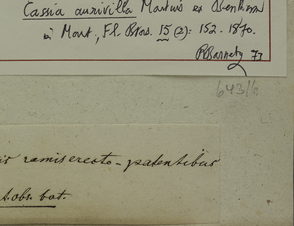 Cassia aurivilla Martius ex Bentham
in Mart., Fl. Bras. 15 (2): 152. 1870.
RBarneby 77
643/6
ramis erecto-patentibus
obs. bot.